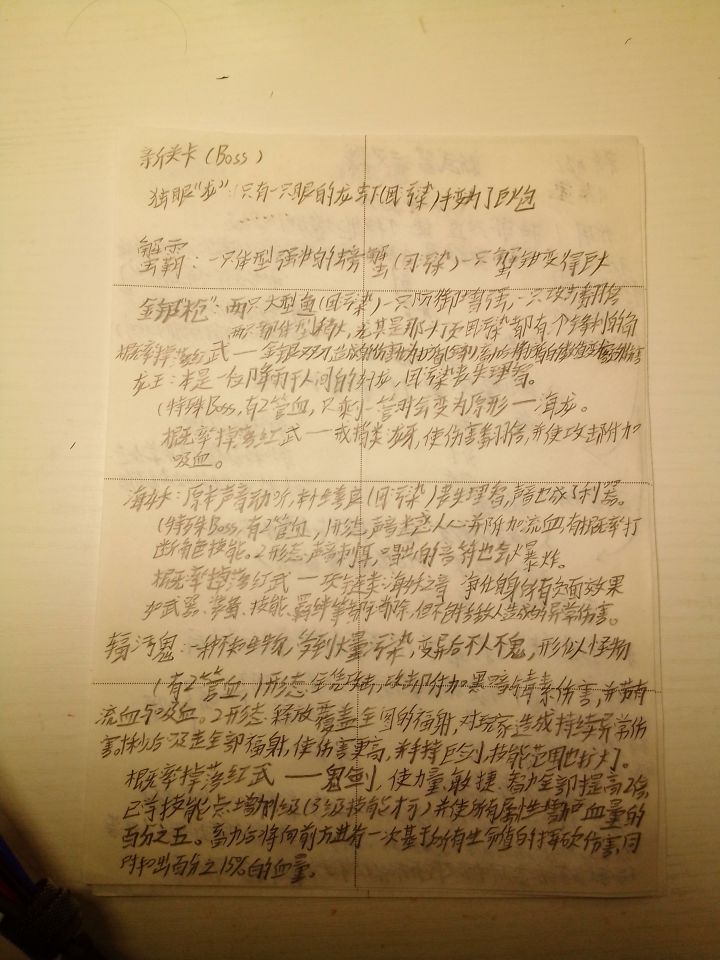 新关卡(Boss)
独眼"龙":只有一只眼的龙虾(因污染)手变为了巨炮
蟹霸:一只体型强壮的螃蟹(因污染)一只蟹钳变得巨大
金银"枪":两只大型鱼(因污染)一只防御增强,一只攻击翻倍
两只都体型,尤其是那头顶因污染都有个锋利的角
概率掉落红武——金银双刀,造成的伤害
龙王:本是一台降雨于人间的神龙,因污染丧失理智。
(特殊Boss,有2管血,只剩一管时会变为原形——海龙。
概率掉落红武——戒指类:龙牙,使伤害翻倍,并使攻击附加
吸血。
海妖:原本声音动听,神生变应(因污染)丧失理智,声音也成了利器。
(特殊Boss,有2管血,1形态声音迷惑人心并附加流血,有概率打
断角色技能。2形态声音刺耳,唱出的音符也会爆炸。
概率掉落红武——项链类:海妖之音 净化自身所有负面效果
和武器、装备、技能、羁绊等都可消除,但不包括敌人造成的异常伤害。
辐污鬼:一种不知生物,受到大量污染,变异后不人不鬼,形似怪物
(有2管血,1形态全凭攻击,攻击附加黑暗与毒素伤害,并带有
流血与吸血。2形态释放覆盖全图的辐射,对玩家造成持续异常伤
害。1秒后吸走全部辐射,使伤害更高,并手持巨剑,技能范围也扩大了。
概率掉落红武——鬼剑,使力量、敏捷、智力全部提高2倍,
已学技能点增加3级(3级技能才可)并使所有属性增加血量的
百分之五。蓄力后将向前方进行一次基于所有生命值的挥砍伤害,同
时扣出百分之15%的血量。